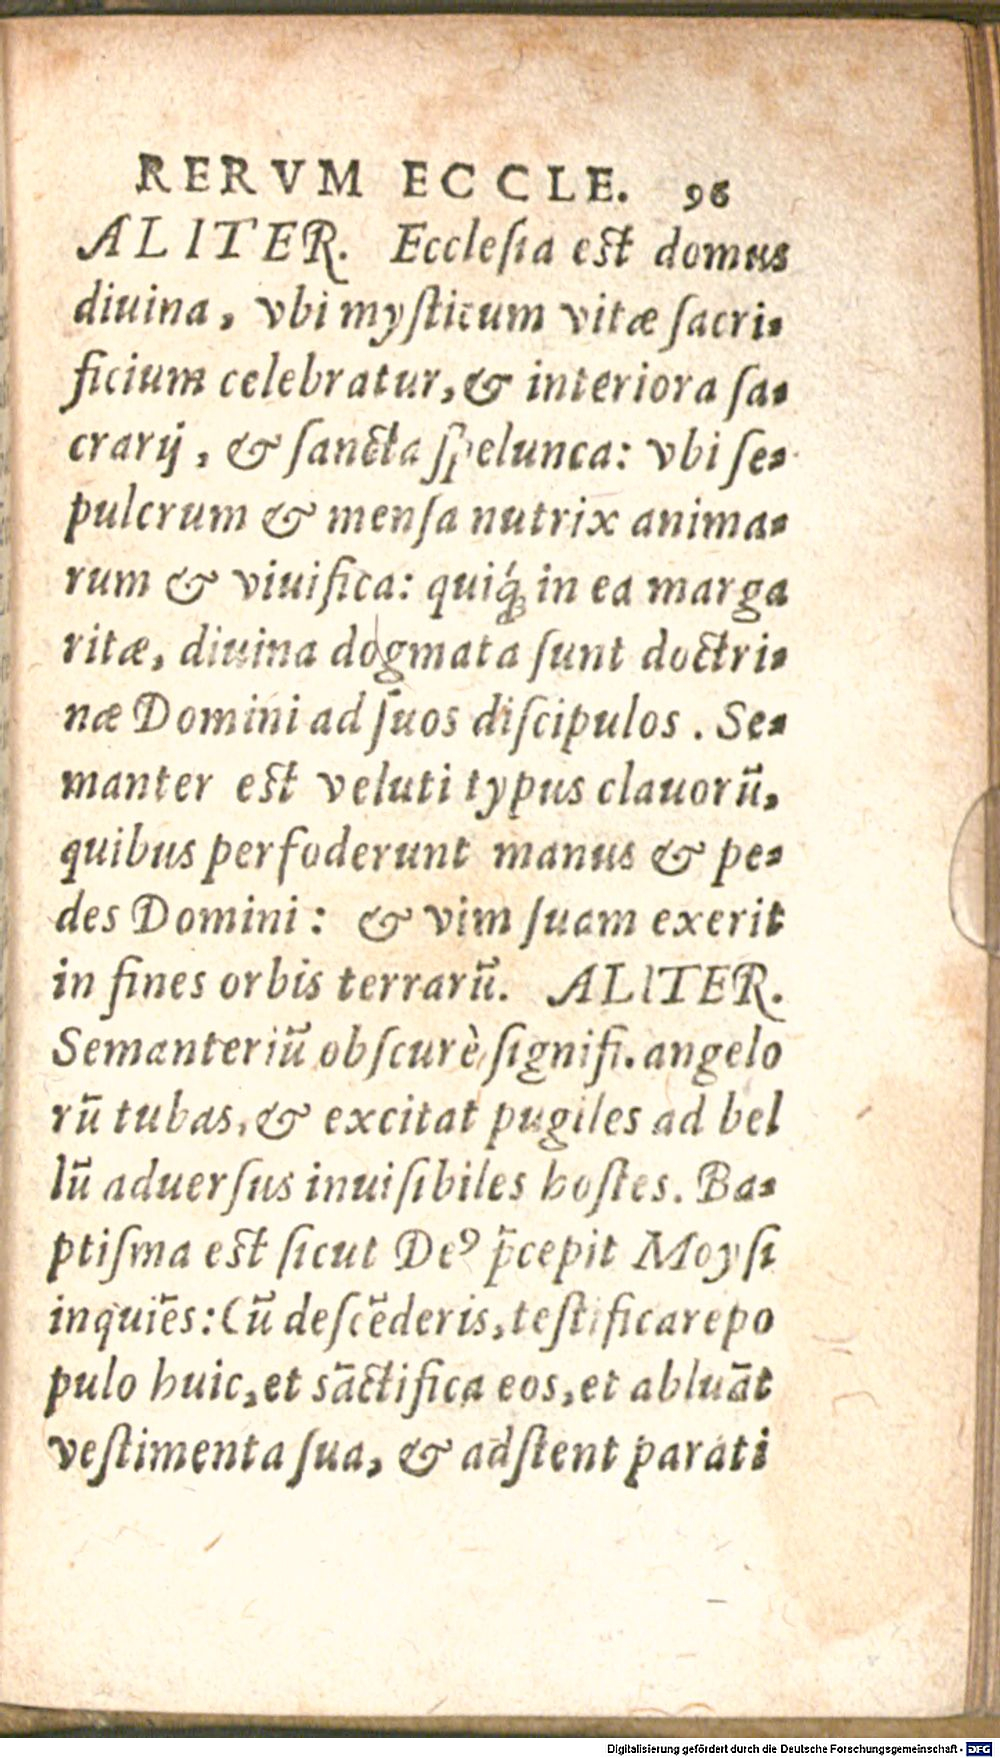 RERVM ECCLE. 96
ALITER. Ecclesia est domus
diuina, vbi mysticum vitæ sacri-
ficium celebratur, & interiora sa-
crarij, & sancta spelunca: vbi se-
pulcrum & mensa nutrix anima-
rum & viuifica: quiq́; in ea marga
ritæ, diuina dogmata sunt doctri-
næ Domini ad suos discipulos. Se-
manter est veluti typus clauorũ,
quibus perfoderunt manus & pe-
des Domini: & vim suam exerit
in fines orbis terrarũ. ALITER.
Semanteriũ obscurè signifi. angelo
rũ tubas, & excitat pugiles ad bel
lũ aduersus inuisibiles hostes. Ba-
ptisma est sicut Deꝰ p̃cepit Moysi
inquiẽs: Cũ descẽderis, testificare po
pulo huic, et sãctifica eos, et abluãt
vestimenta sua, & adstent parati
Digitalisierung gefördert durch die Deutsche Forschungsgemeinschaft - DFG